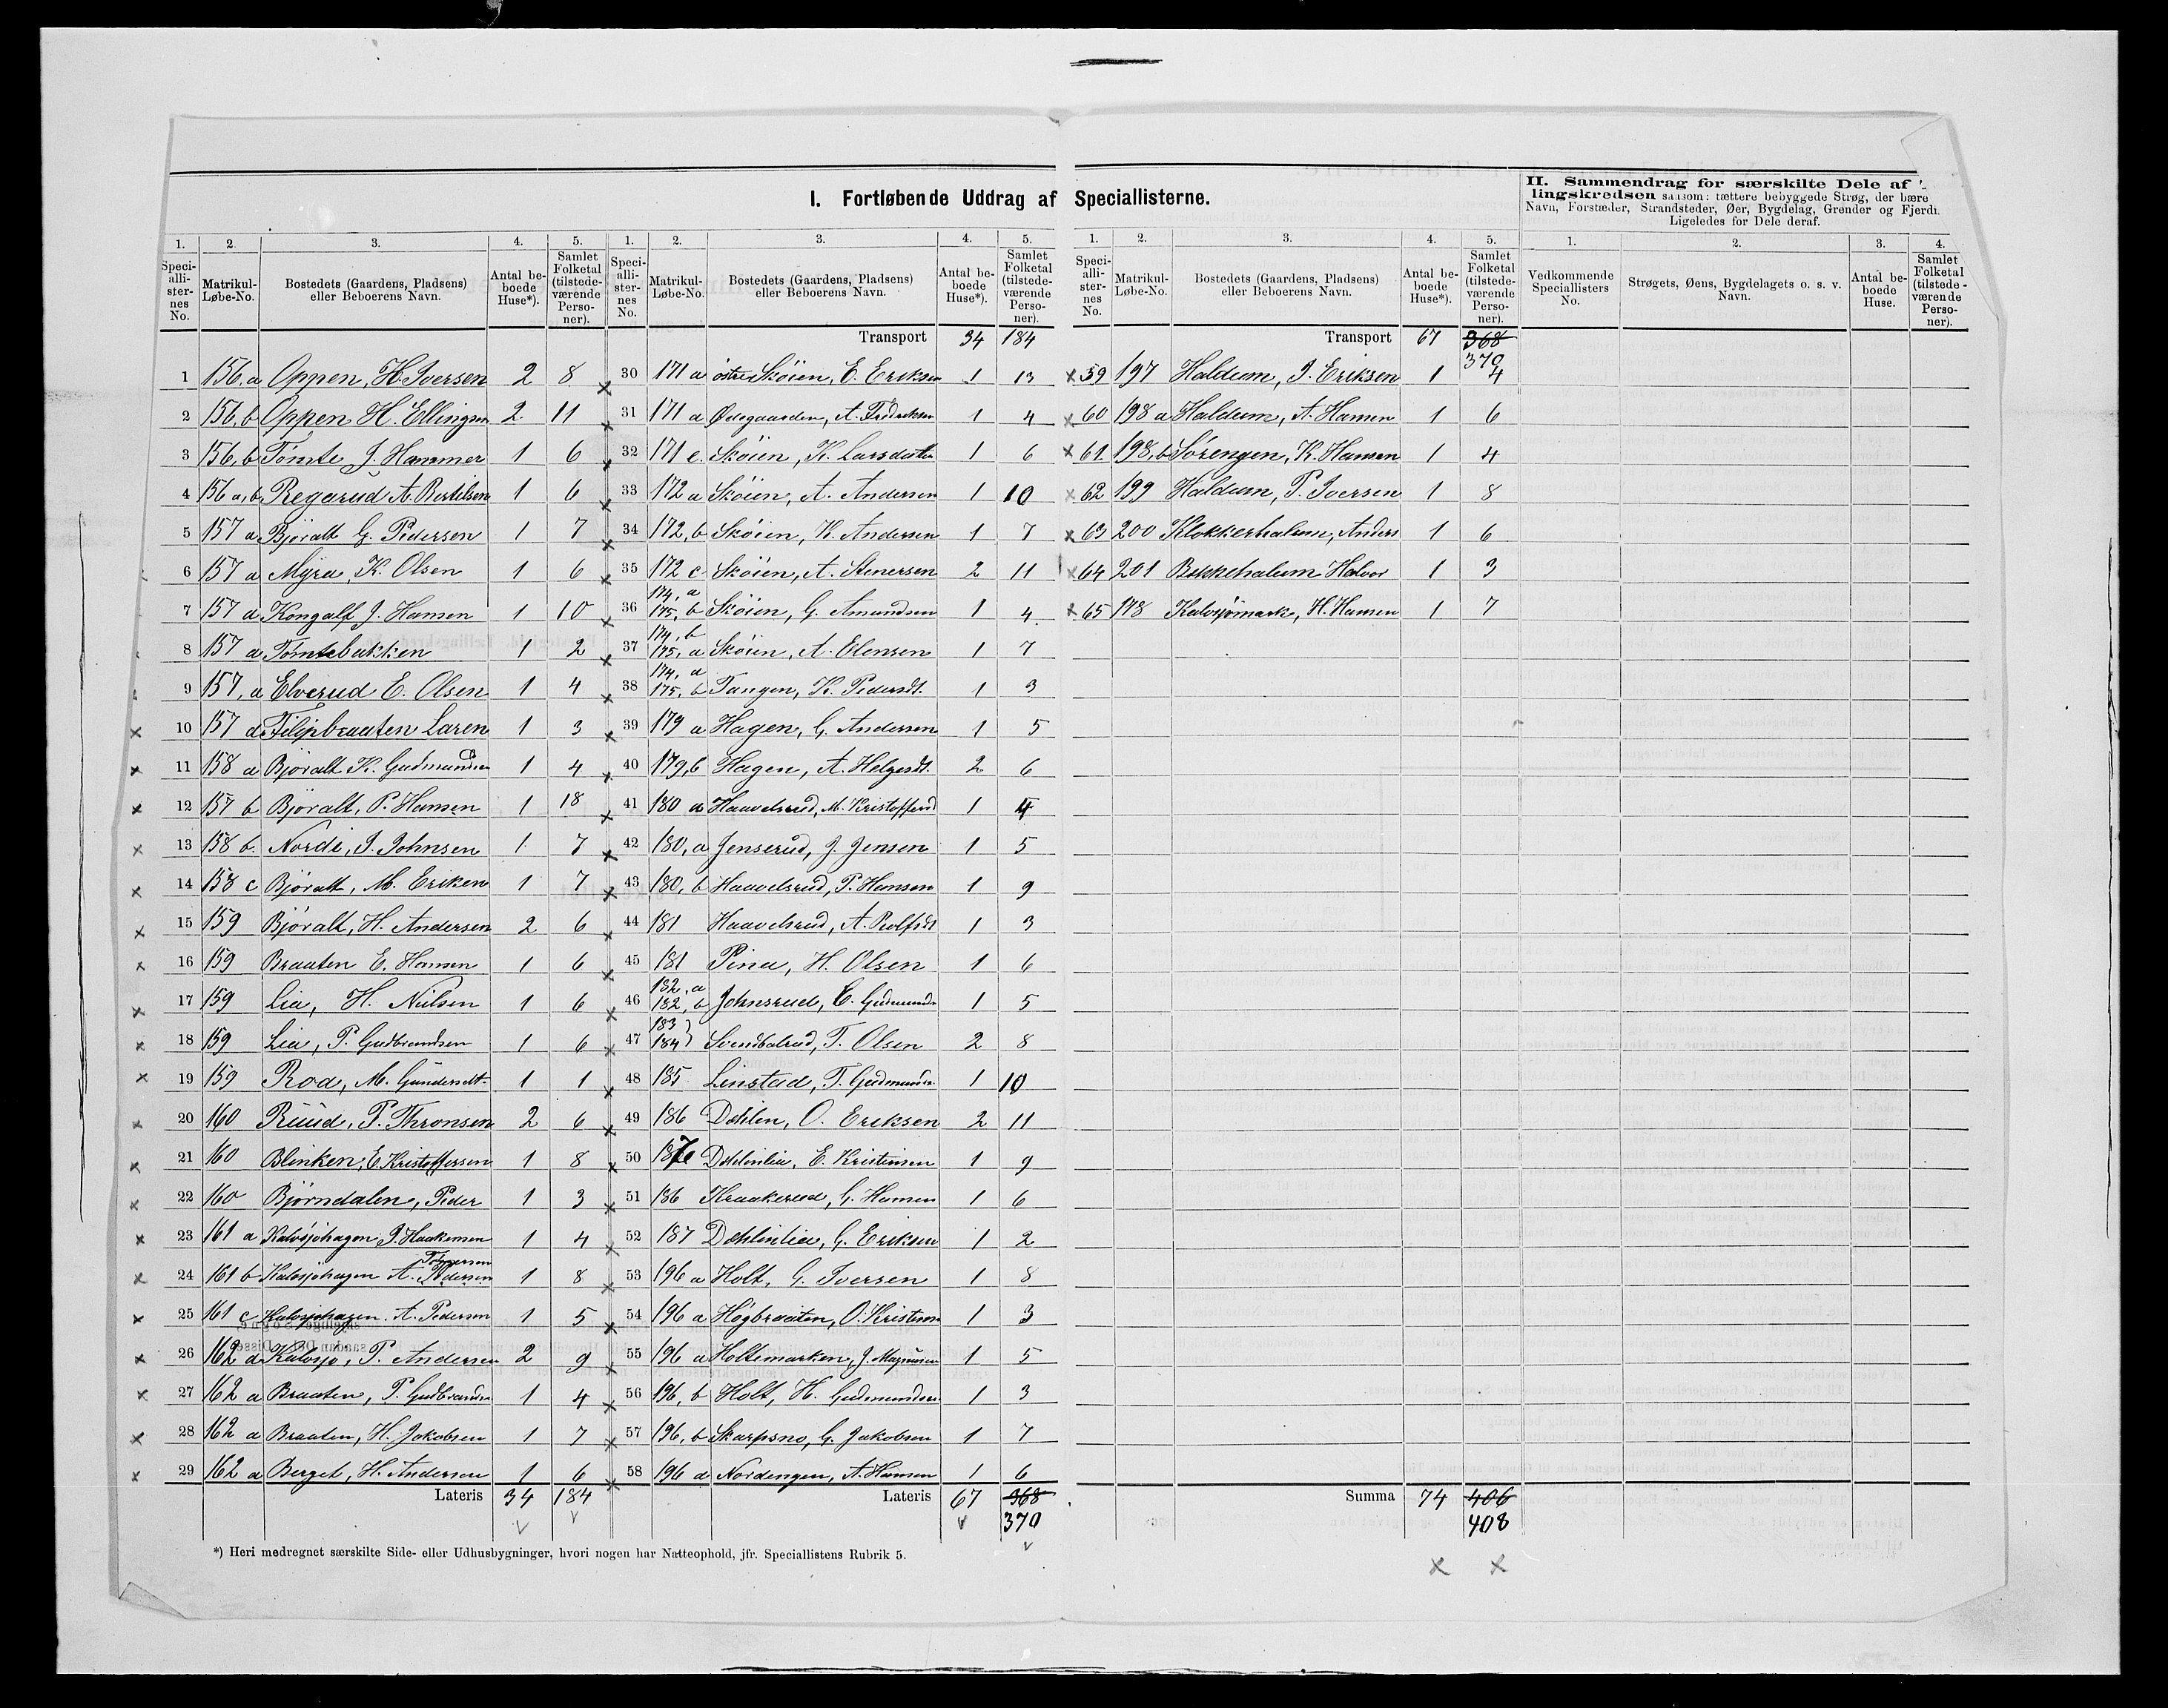 I. Fortløbende Uddrag af Speciallisterne.
II. Sammendrag for særskilte Dele af
lingskredsen saasom: tættere bebyggede Strøg, der bære
Navn, Forstæder, Strandsteder, Øer, Bygdelag, Grender og Fjerdi
Ligeledes for Dele deraf.
1. 2. 3. 4. 5.
Speciallisternes No. Matrikul-Løbe-No. Bostedets (Gaardens, Pladsens) eller Beboerens Navn. Antal beboede Huse*). Samlet Folketal (tilstedeværende Personer).
1 156,a Oppen, H. Iversen 2 8
2 156,b Oppen H. Ellingsen 2 11
3 156,b Tømte J. Hammer 1 6
4 156 a,b Regarud A. Bertelsen 1 6
5 157 a Björalt G. Pedersen 1 7
6 157 a Myra, K. Olsen 1 6
7 157 a Kongalf J. Hansen 1 10
8 157 a Tömtebakken 1 2
9 157, a Elverud E. Olsen 1 4
10 157 a Filipbraaten Laren 1 3
11 158 a Björalt K. Gudmunds 1 4
12 157 b Björalt, P. Hansen 1 18
13 158 b. Nordi, J. Johnsen 1 7
14 158 c Björalt, M. Eriken 1 7
15 159 Björalt, H. Andersen 2 6
16 159 Braaten E. Hansen 1 6
17 159 Lia, H. Nilsen 1 6
18 159 Lia, P. Gudbrandsen 1 6
19 159 Roa, M. Gundersdt. 1 1
20 160 Ruud, P. Thronsen 2 6
21 160 Blinken, E. Kristoffersen 1 8
22 160 Björndalen, Peder 1 3
23 161 a Kalvsjöhagen, P. Haakensen 1 4
24 161 b Kalvsjöhagen A. Pedersen 1 8
25 161 c Kalvsjöhagen. A. Pedersen 1 5
26 162 a Kalvsjö, P. Andersen 2 9
27 162 a Braaten, P. Gudbrands 1 4
28 162 a Braaten, H. Jakobsen 1 7
29 162 a Berget, H. Andersen 1 6
Lateris 34 184
*) Heri medregnet særskilte Side- eller Udhusbygninger, hvori nogen har Natteophold, jfr. Speciallistens Rubrik 5.
1. 2. 3. 4. 5.
Speciallisternes No. Matrikul-Løbe-No. Bostedets (Gaardens, Pladsens) eller Beboerens Navn. Antal beboede Huse*). Samlet Folketal (tilstedeværende Personer).
Transport 34 184
30 171 a östre Sköien, E. Eriksen 1 13
31 171 a Ødegaarden, A. Fredriksen 1 4
32 171 c. Sköien, K. Larsdatter 1 6
33 172 a Sköien, A. Andersen 1 10
34 172, b Sköien, K. Andersen 1 7
35 172 c Sköien, A. Stenersen 2 11
36 174, a 175, b Sköien, G. Amundsen 1 4
37 174, b 175, a Sköien, A. Elensen 1 7
38 174, a 175, b Tangen, K. Pedersdt. 1 3
39 179 a Hagen, G. Andersen 1 5
40 179,b Hagen, A. Helgesdt. 2 6
41 180 a Haavelsrud, M. Kristoffersd 1 4
42 180, a Jenserud, J. Jensen 1 5
43 180, b Haavelsrud, P. Hansen 1 9
44 181 Haavelsrud, A. Rolfsdt 1 3
45 181 Pina, H. Olsen 1 6
46 182, a 182, b Johnsrud, E. Gudmunds 1 5
47 183) 184) Svendbalrud, T. Olsen 2 8
48 185 Linstad, T. Gudmunds 1 10
49 186 Dæhlen, O. Eriksen 2 11
50 187 Dæhlinlia, E. Kristiansen 1 9
51 186 Kraakerud, G. Hansen 1 6
52 187 Dæhlinlia, G. Eriksen 1 2
53 196 a Holt, G. Iversen 1 8
54 196 a Högbraaten, O. Kristens 1 3
55 196 a Holtemarken, J. Magnusen 1 5
56 196, b Holt, H. Gudmundsen 1 3
57 196, b Skarpsno, G. Jakobsen 1 7
58 196 a Nordengen, A. Hansen 1 6
Lateris 67 368
370
1. 2. 3. 4. 5.
Speciallisternes No. Matrikul-Løbe-No. Bostedets (Gaardens, Pladsens) eller Beboerens Navn. Antal beboede Huse*). Samlet Folketal (tilstedeværende Personer).
Transport 67 368
370
59 197 Haldum, J. Eriksen 1 4
60 198 a Haldum, A. Hansen 1 6
61 198,b Sörengen, K. Hansen 1 4
62 199 Haldum, P. Iversen 1 8
63 200 Klokkerhalum, Anders 1 6
64 201 Bekkehalum Halvor 1 3
65 178 Kalvsjömark, H. Hansen 1 7
Summa 74 406
408
1. 2. 3. 4.
Vedkommende Speciallisters No. Strøgets, Øens, Bygdelagets o. s. v. Navn. Antal beboede Huse. Samlet Folketal (tilstedeværende Personer).